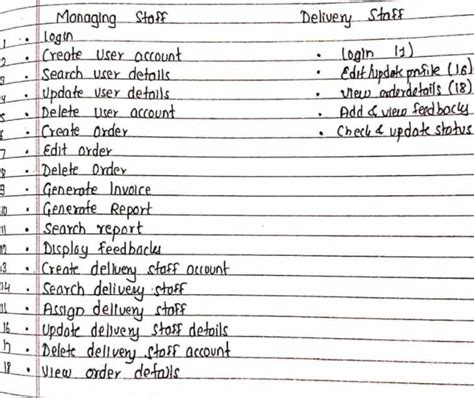 Managing Staff Delivery Staff
1 • Login
2 • Create User account • login (1)
3 • Search user details • Edit/update profile (16)
4 • Update user details • view orderdetails (18)
5 • Delete User account • Add & view feedbacks
6 • Create Order • Check & update status
7 • Edit order
8 • Delete Order
9 • Generate Invoice
10 • Generate Report
11 • Search report
12 • Display Feedbacks
13 • Create delivery staff account
14 • Search delivery staff
15 • Assign delivery staff
16 • Update delivery staff details
17 • Delete delivery staff account
18 • View order details